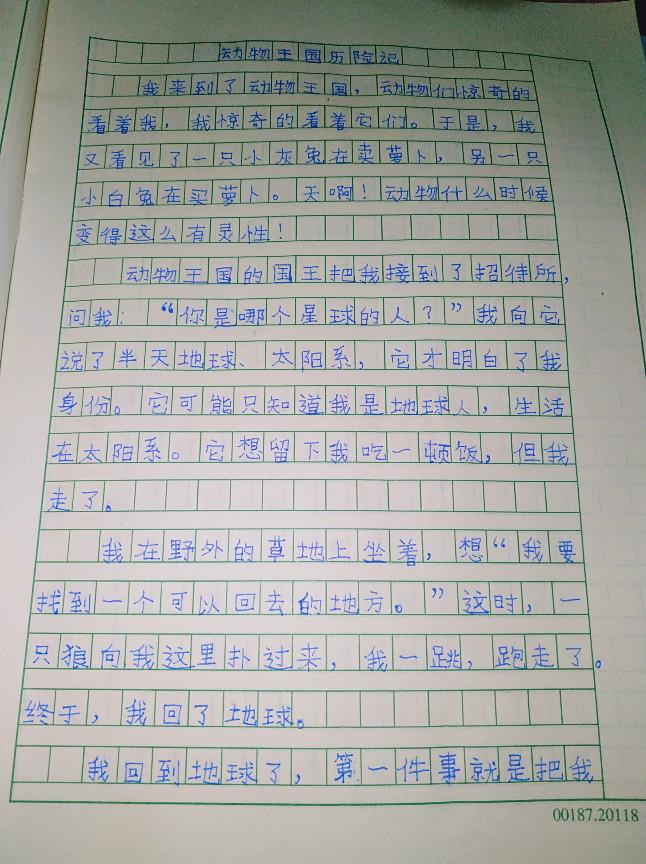 动物王国历险记
我来到了动物王国，动物们惊奇的
看着我，我惊奇的看着它们。于是，我
又看见了一只小灰兔在卖萝卜，另一只
小白兔在买萝卜。天啊！动物什么时候
变得这么有灵性！
动物王国的国王把我接到了招待所，
问我：“你是哪个星球的人？”我向它
说了半天地球、太阳系，它才明白了我
身份。它可能只知道我是地球人，生活
在太阳系。它想留下我吃一顿饭，但我
走了。
我在野外的草地上坐着，想“我要
找到一个可以回去的地方。”这时，一
只狼向我这里扑过来，我一跳，跑走了。
终于，我回了地球。
我回到地球了，第一件事就是把我
00187.20118